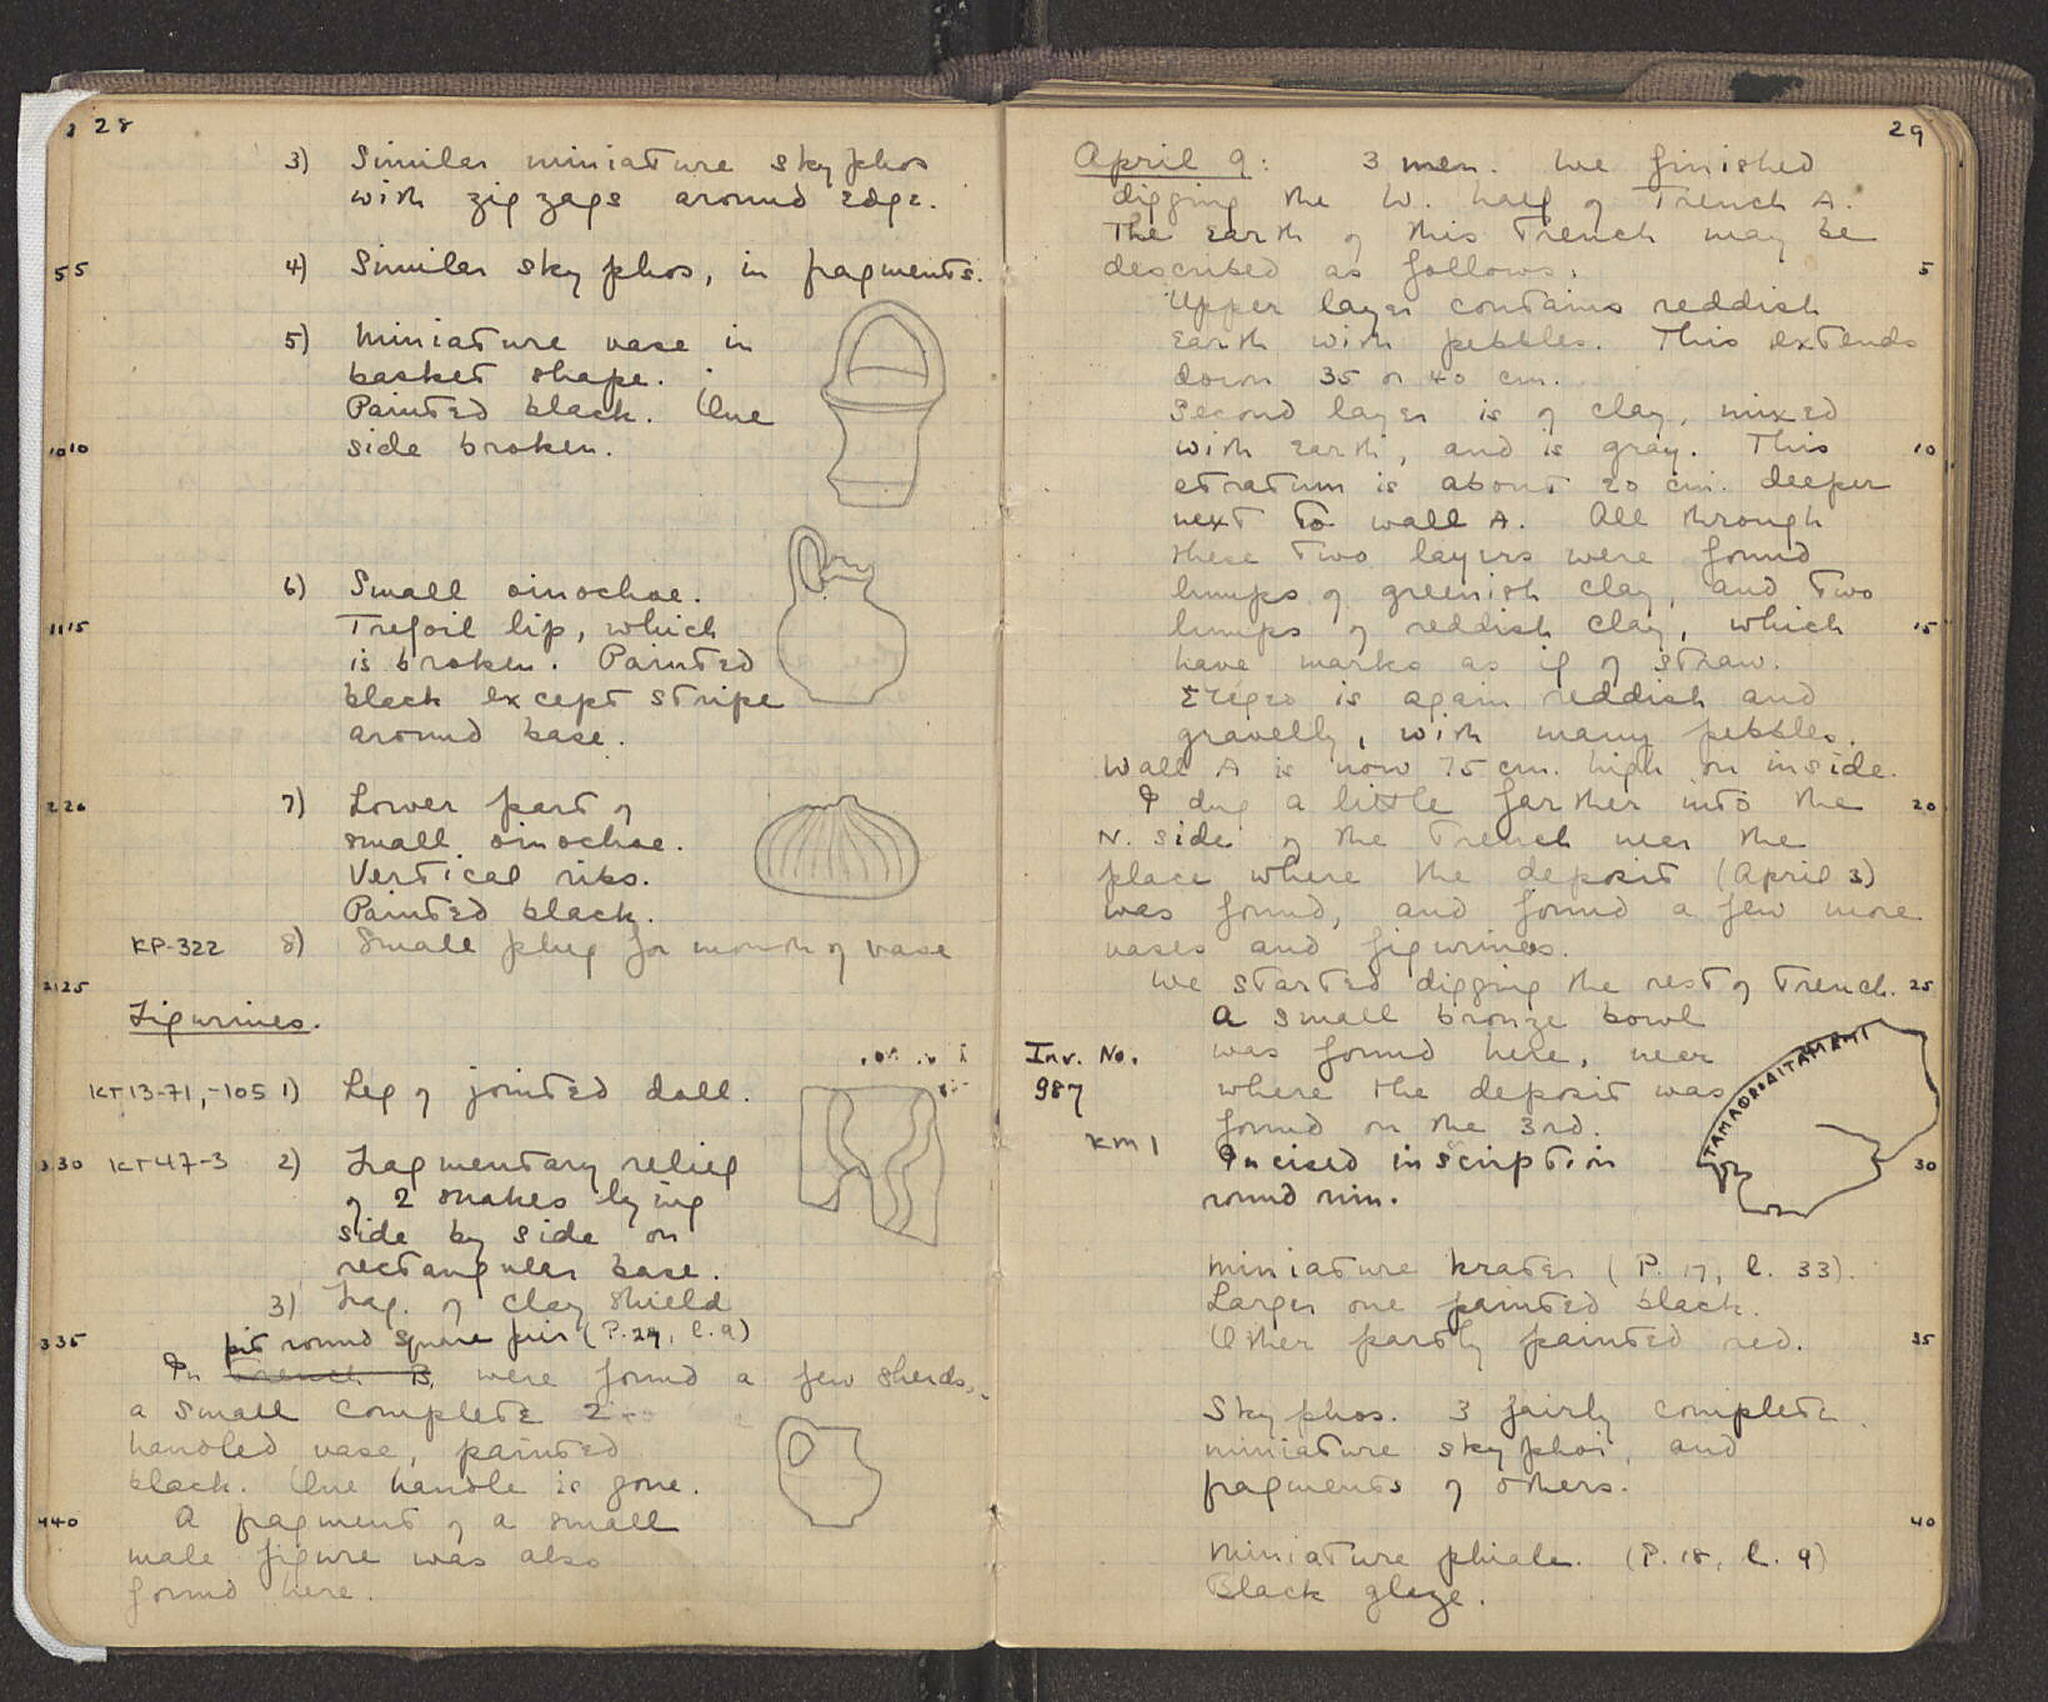 28
3) Similar miniature skyphos
with zig zags around edge.
55 4) Similar skyphos, in fragments.
5) Miniature vase in
basket shape.
Painted black. One
1010 side broken.
6) Small oinochoe.
1115 Trefoil lip, which
is broken. Painted
black except stripe
around base.
220 7) Lower part of
small oinochoe.
Vertical ribs.
Painted black.
KP-322 8) Small plug for mouth of vase
25
Figurines.
KT13-71, -105 1) Leg of jointed doll.
30 KT47-3 2) Fragmentary relief
of 2 snakes lying
side by side on
rectangular base.
3) Frag. of clay shield
335 pit round square pier (P. 24, l. 9)
In Trench B, were found a few sherds,
a small complete 2
handled vase, painted
black. One handle is gone.
440 A fragment of a small
male figure was also
found here.
29
April 9: 3 men. We finished
digging the W. half of Trench A.
The earth of this trench may be
described as follows: 5
Upper layer contains reddish
earth with pebbles. This extends
down 35 or 40 cm.
Second layer is of clay, mixed
with earth, and is gray. This 10
stratum is about 20 cm. deeper
next to wall A. All through
these two layers were found
lumps of greenish clay, and two
lumps of reddish clay, which 15
have marks as if of straw.
Στερεό is again reddish and
gravelly, with many pebbles.
Wall A is now 75 cm. high on inside.
I dug a little farther into the 20
N. side of the trench near the
place where the deposit (April 3)
was found, and found a few more
vases and figurines.
We started digging the rest of trench. 25
A small bronze bowl
Inv. No. was found here, near
987 where the deposit was
found on the 3rd.
KM 1 Incised inscription 30
round rim.
ΤΑΜΑΦΡΟΔΙΤΑΜΕΜΙ
Miniature krater (P. 17, l. 33).
Larger one painted black.
Other partly painted red. 35
Skyphos. 3 fairly complete
miniature skyphoi, and
fragments of others.
40
Miniature phiale. (P. 18, l. 9)
Black glaze.